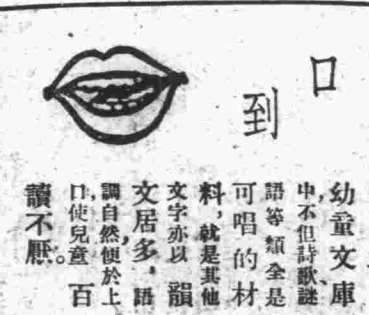 口到
幼童文庫
中，不但詩歌、謎
語等類全是
可唱的材
料，就是其他
文字亦以韻
文居多，語
調自然，便於上
口，使兒童百
讀不厭。